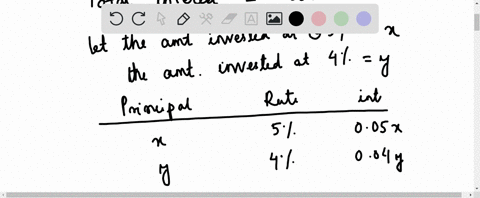 let the amt invested at x
the amt. invested at 4% = y
Principal Rate int
x 5% 0.05x
y 4% 0.04y